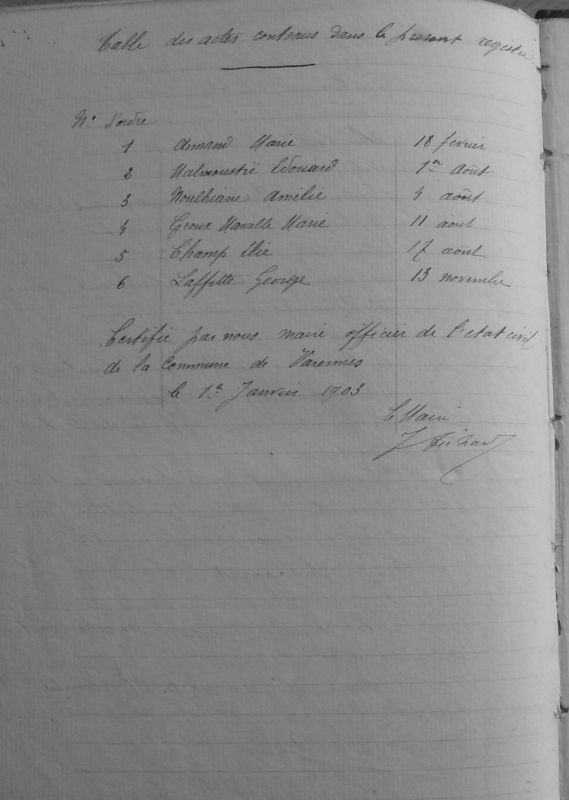 Table des actes contenus dans le present registre
N° d'ordre
1 Armand Marie 18 fevrier
2 Malmoustié Edouard 1er Août
3 Noulhiane Amélie 4 août
4 Groux Marie 11 aout
5 Champ Elie 17 août
6 Laffitte George 13 novembre
Certifié par nous maire officier de l'etat civil
de la Commune de Varennes
le 1er Janvier 1903
le Maire